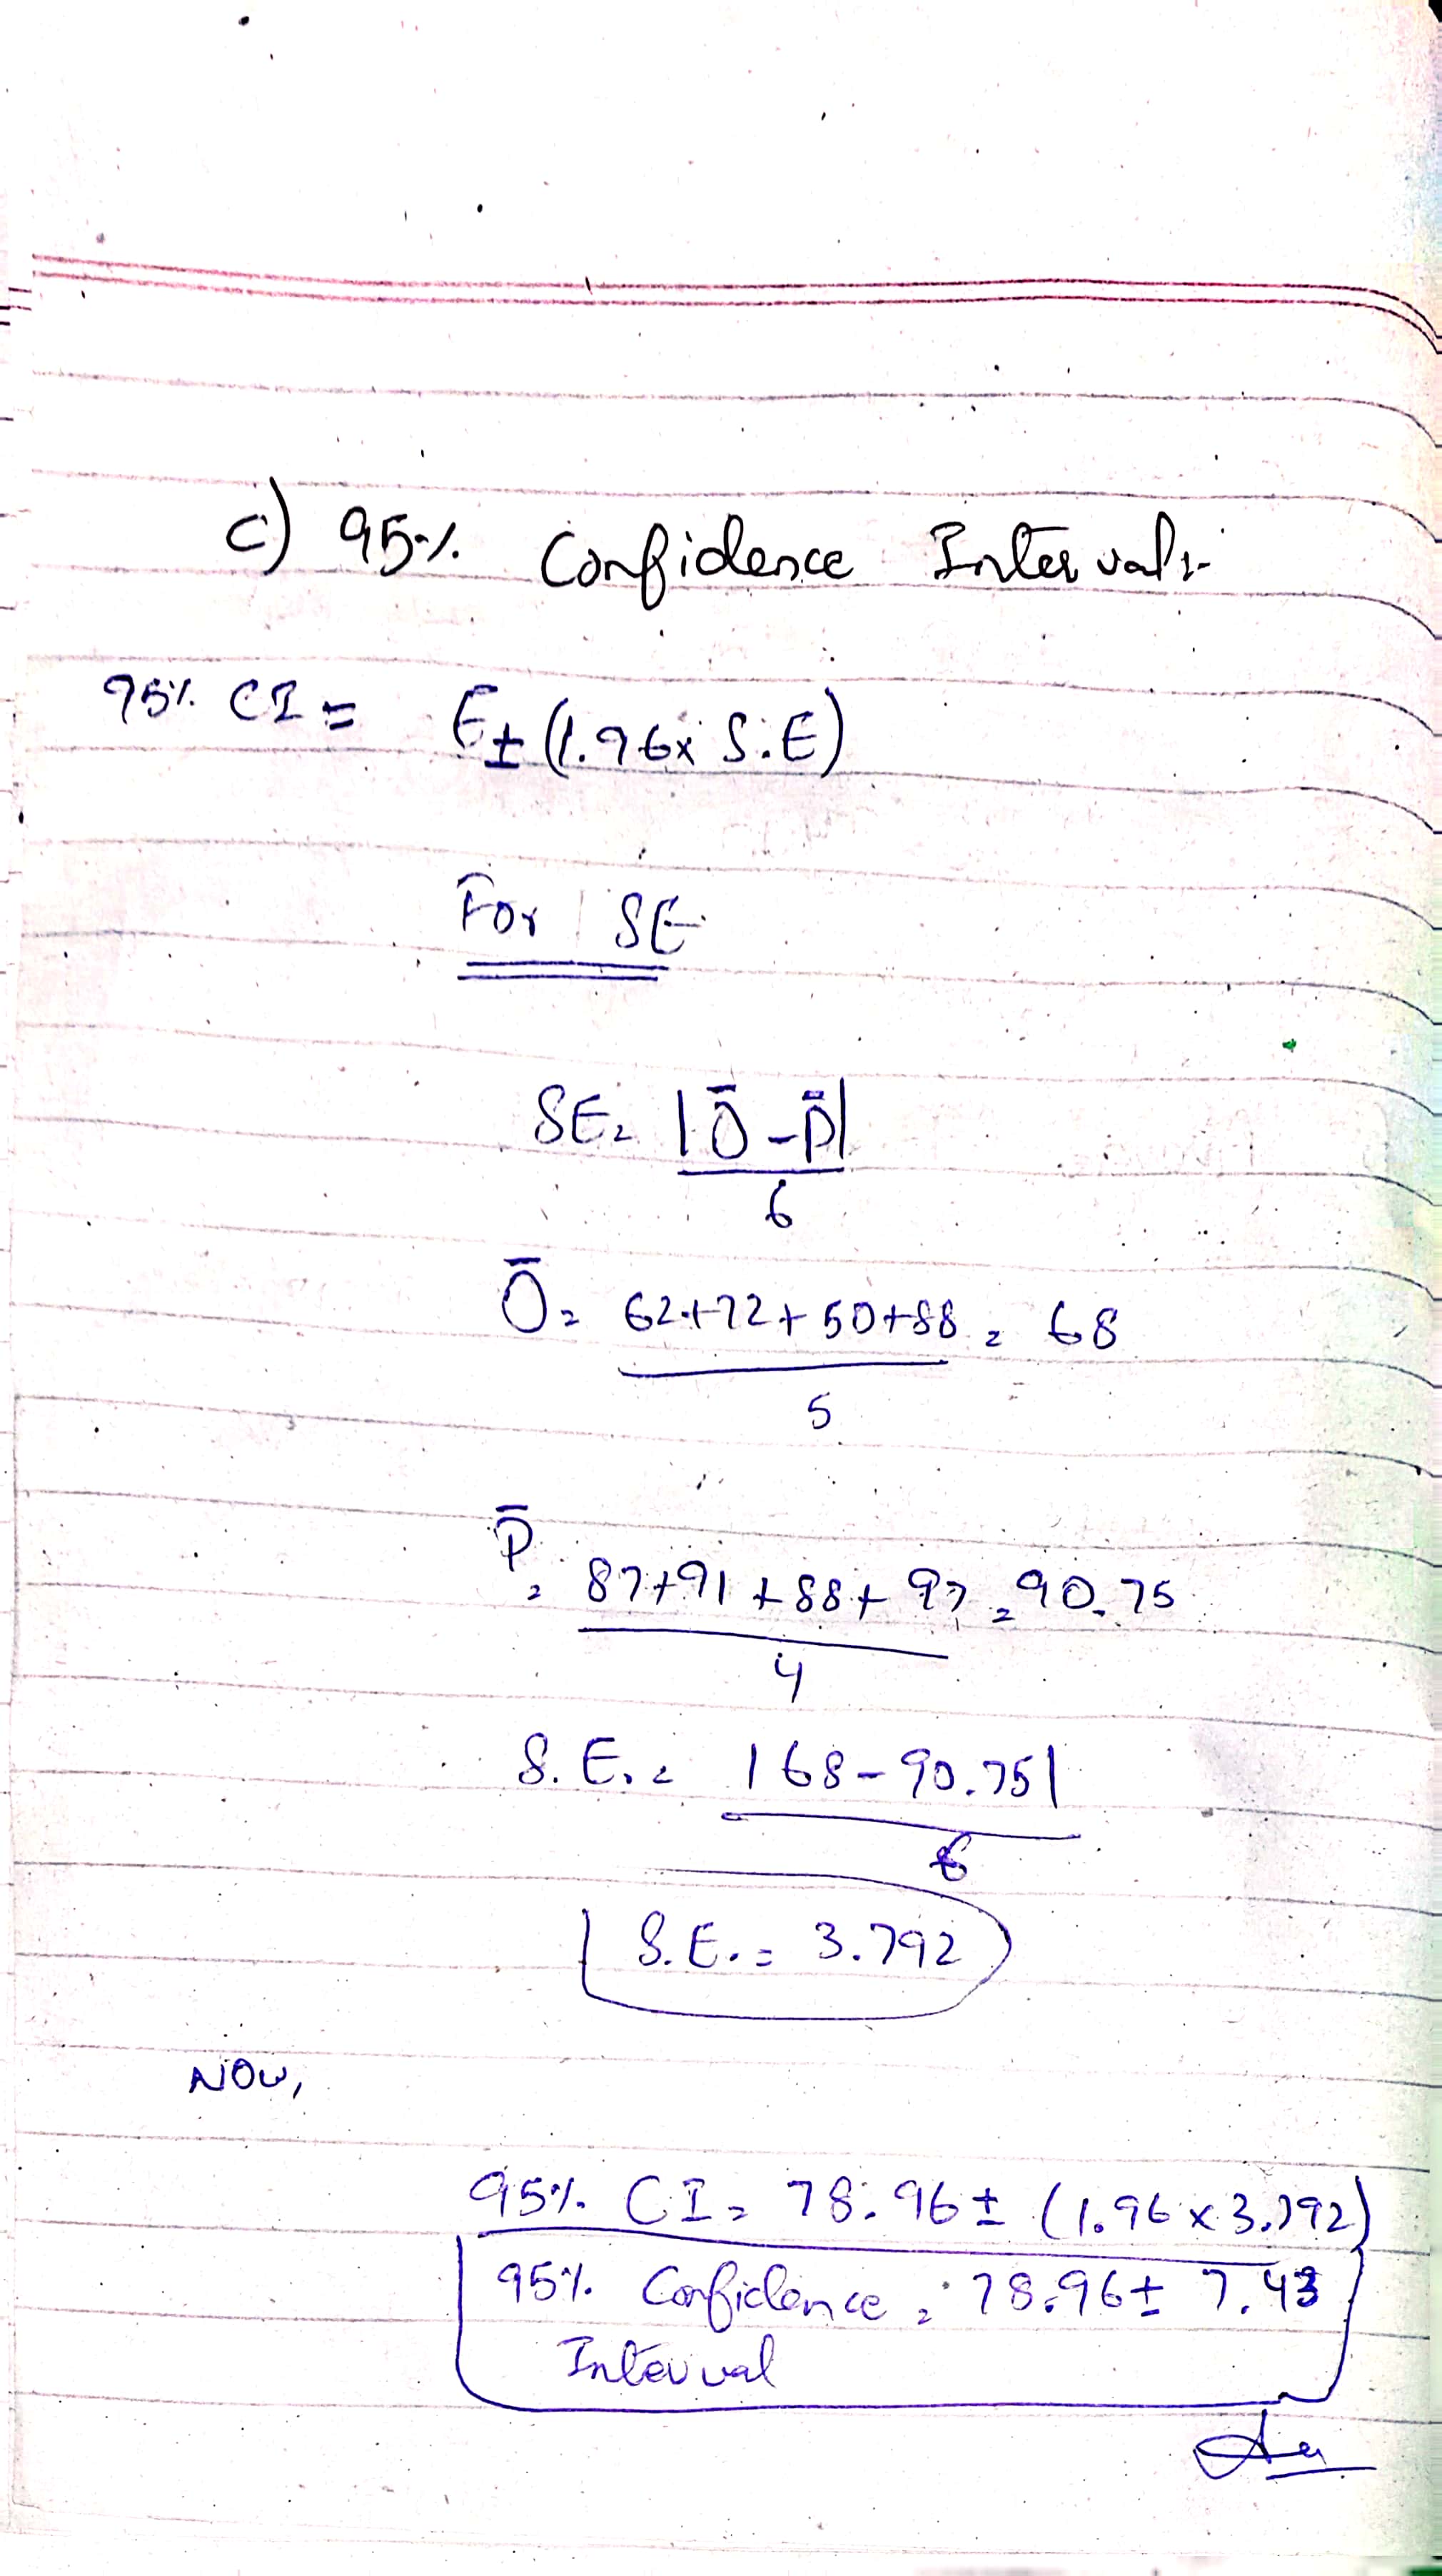 c) 95% Confidence Interval:-
95% CI = E ± (1.96 x S.E)
For SE
SE = |Ō - P̄|
6
Ō = 62+72+50+88 = 68
5
P̄ = 87+91+88+97 = 90.75
4
S.E. = |68-90.75|
6
S.E. = 3.792
NOW,
95% CI = 78.96 ± (1.96 x 3.792)
95% Confidence = 78.96 ± 7.43
Interval